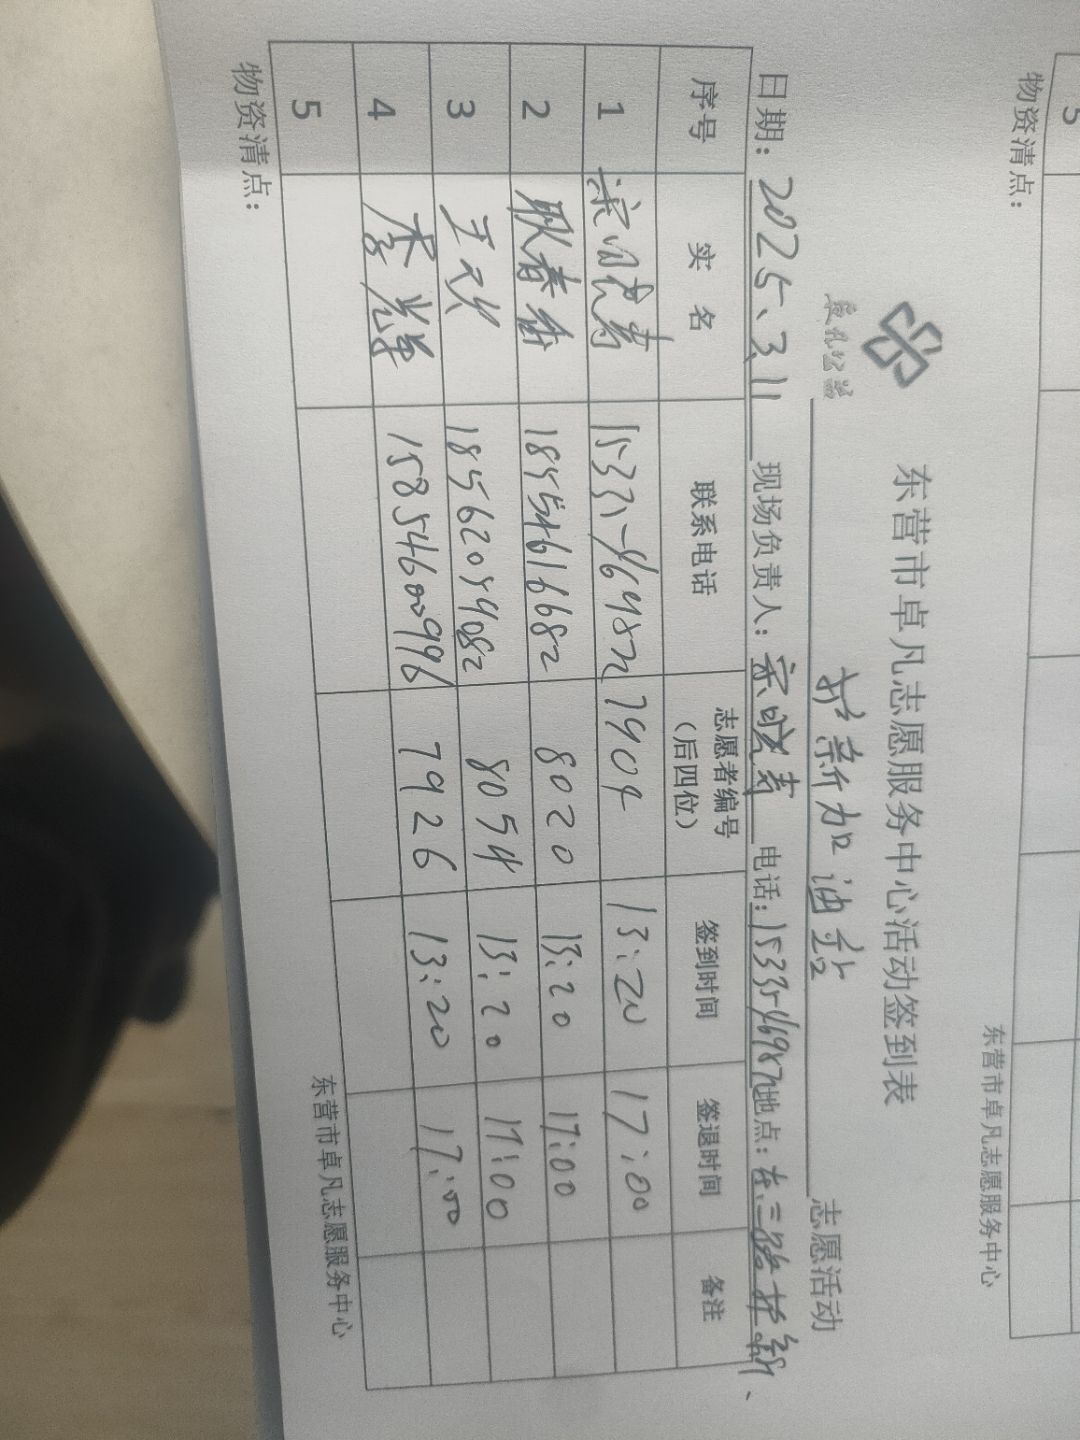 东营市卓凡志愿服务中心活动签到表
卓凡公益
加油站 志愿活动
日期：2025、3、11 现场负责人： 电话： 地点：东三路
序号 实名 联系电话 志愿者编号（后四位） 签到时间 签退时间 备注
1 7904 13:20 17:00
2 耿春香 18554616682 8020 13:20 17:00
3 王 18562054082 8054 13:20 17:00
4 李 15854600996 7926 13:20 17:00
5
物资清点：
东营市卓凡志愿服务中心
5
物资清点：
东营市卓凡志愿服务中心